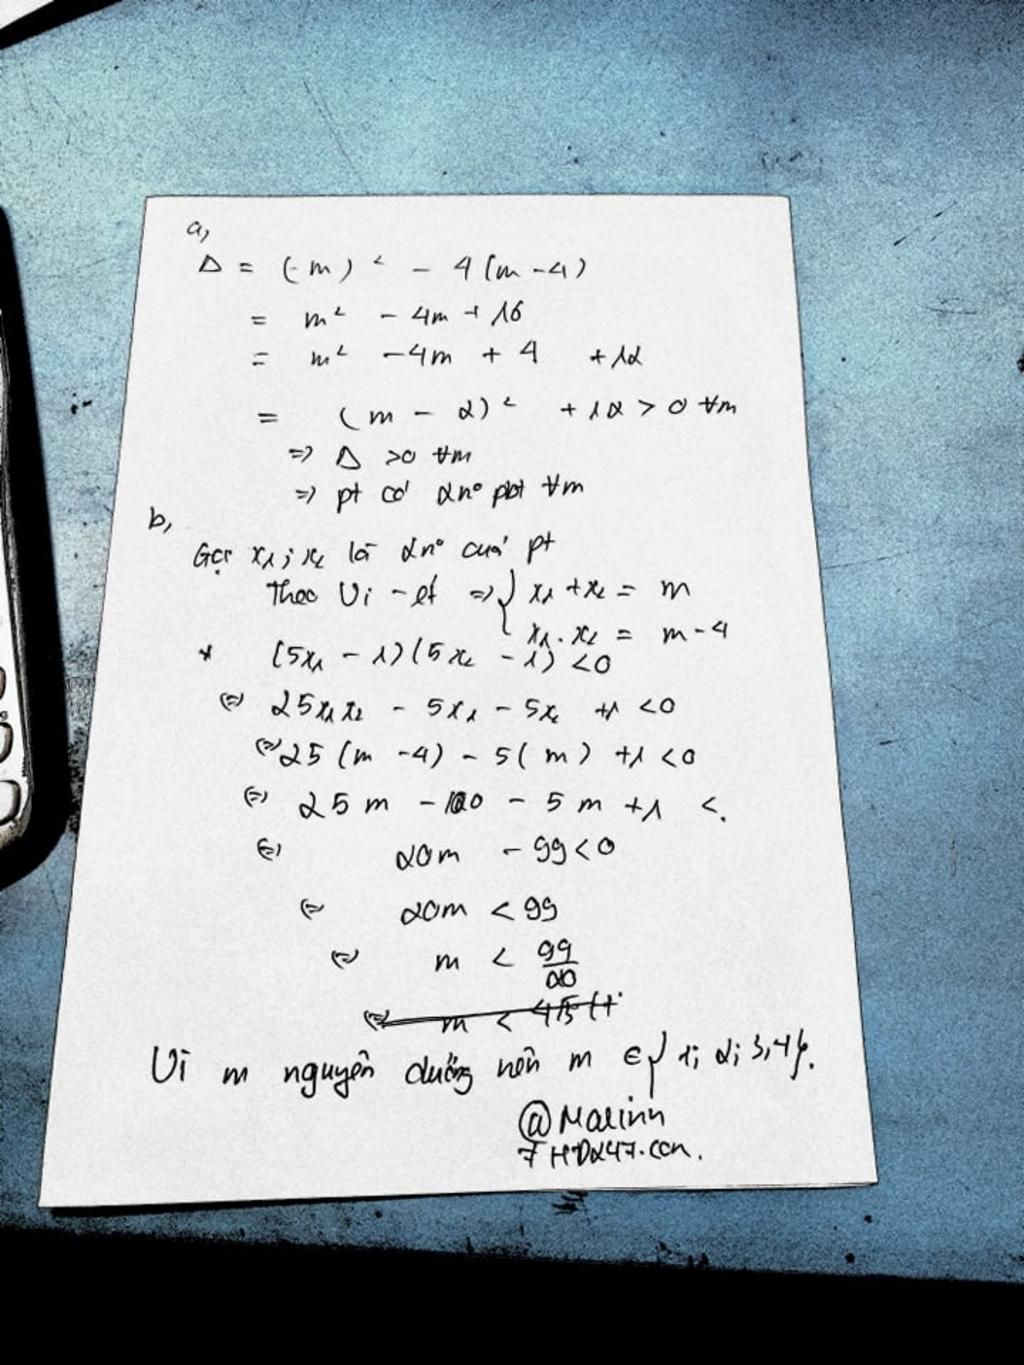 a,
Δ = (-m)² - 4(m-4)
= m² - 4m + 16
= m² - 4m + 4 + 12
= (m - 2)² + 12 > 0 ∀m
=> Δ >0 ∀m
=> pt có 2n° pbt ∀m
b,
Gọi x₁; x₂ là 2n° của pt
Theo Vi-ét => { x₁ + x₂ = m
x₁.x₂ = m-4
* (5x₁ - 1)(5x₂ - 1) <0
(=) 25x₁x₂ - 5x₁ - 5x₂ +1 <0
(=) 25(m-4) - 5(m) +1 <0
(=) 25m - 100 - 5m +1 <.
(=) 20m - 99<0
(=) 20m < 99
(=) m < 99/20
(=) m <
Vì m nguyên dương nên m ∈ {1; 2; 3,4}.
@Malinh
7 HD247.con.